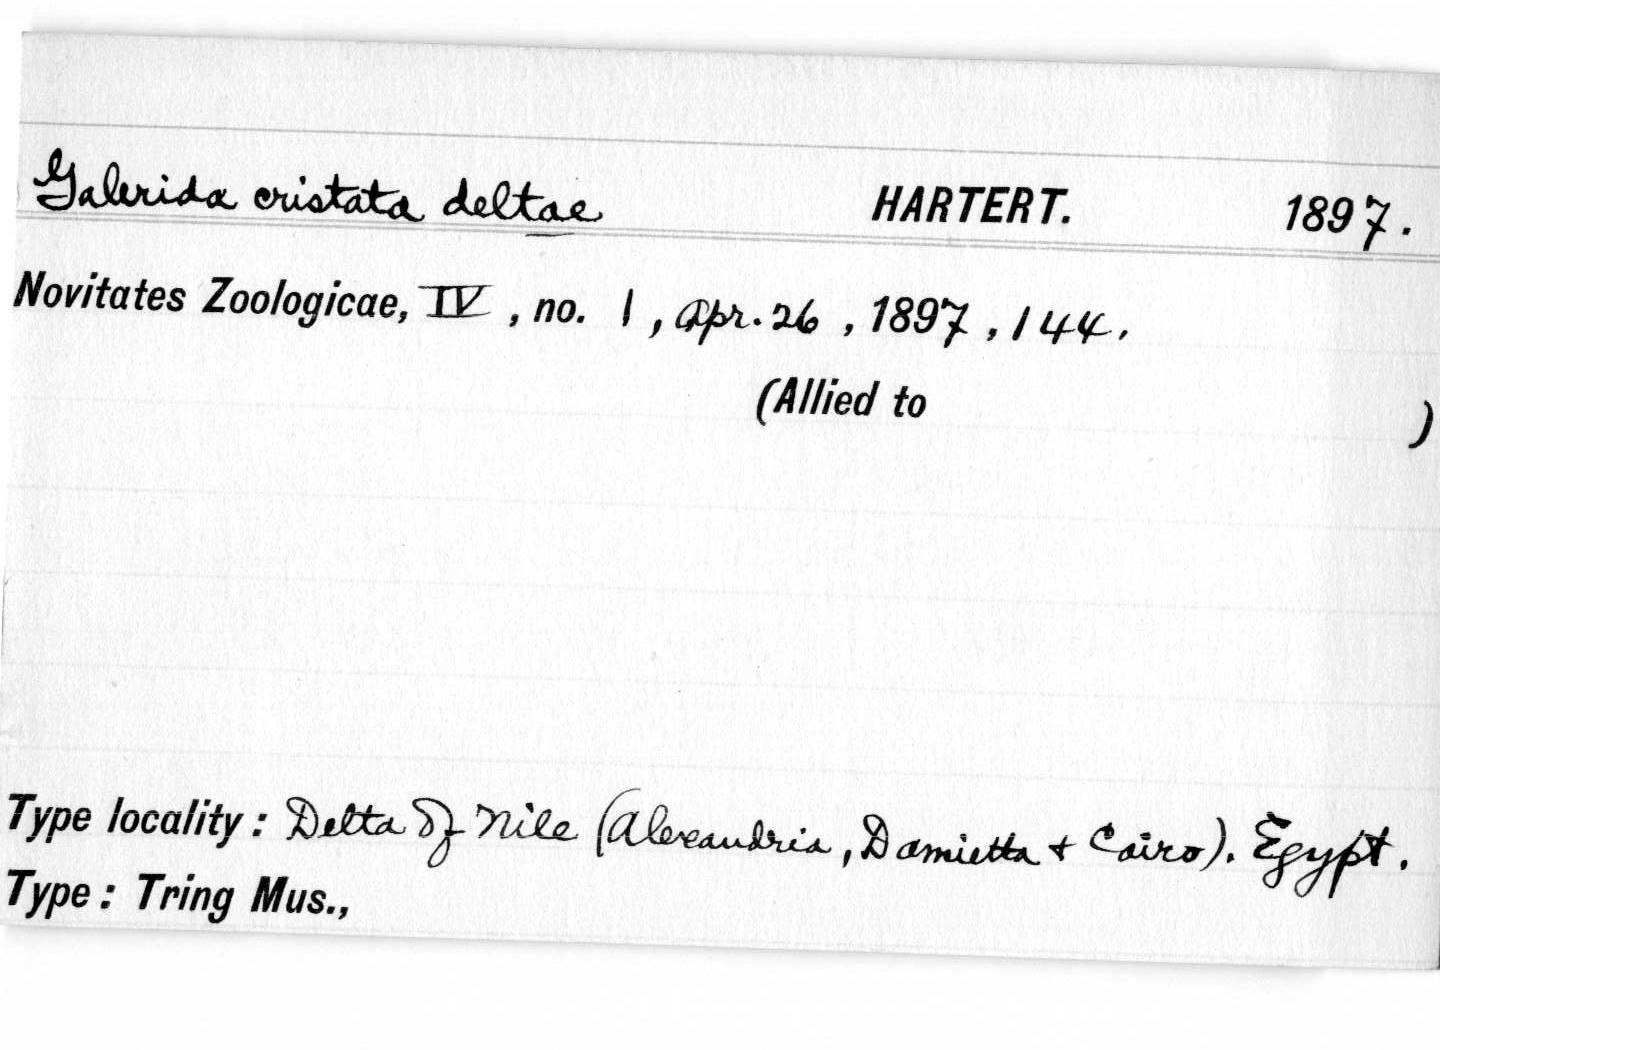 Galerida cristata deltae HARTERT. 1897.
Novitates Zoologicae, IV, no. 1, Apr. 26, 1897, 144.
(Allied to )
Type locality: Delta of Nile (Alexandria, Damietta + Cairo). Egypt.
Type: Tring Mus.,